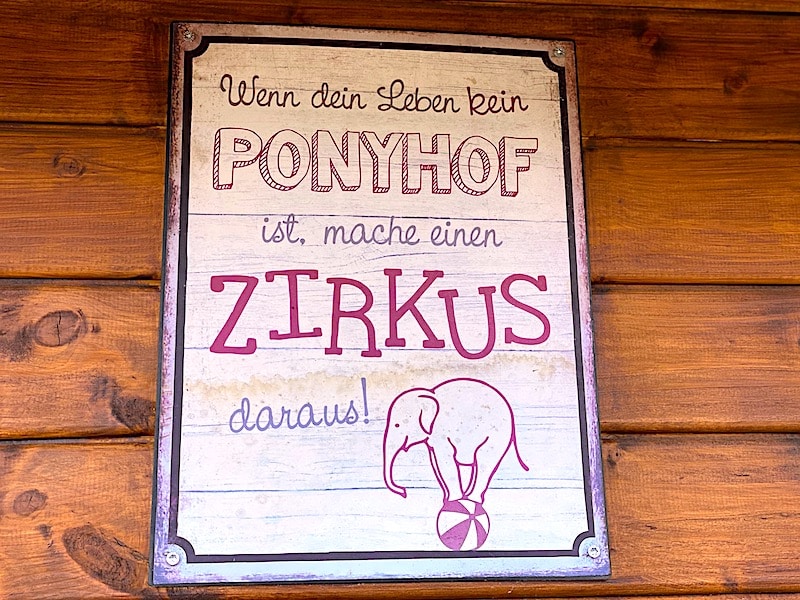 Wenn dein Leben kein
PONYHOF
ist, mache einen
ZIRKUS
daraus!